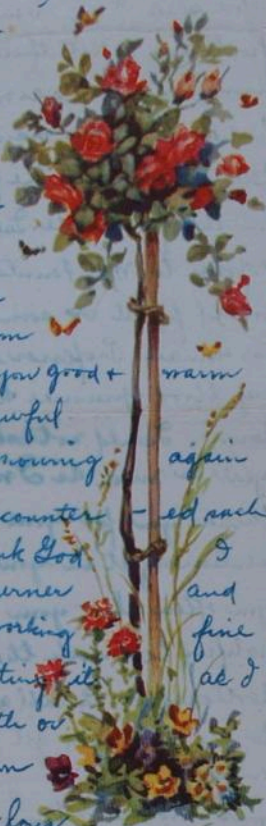 m
you good + warm
wful
snowing again
counter - ed such
nk God I
urner and
orking fine
ting it as I
th or
m